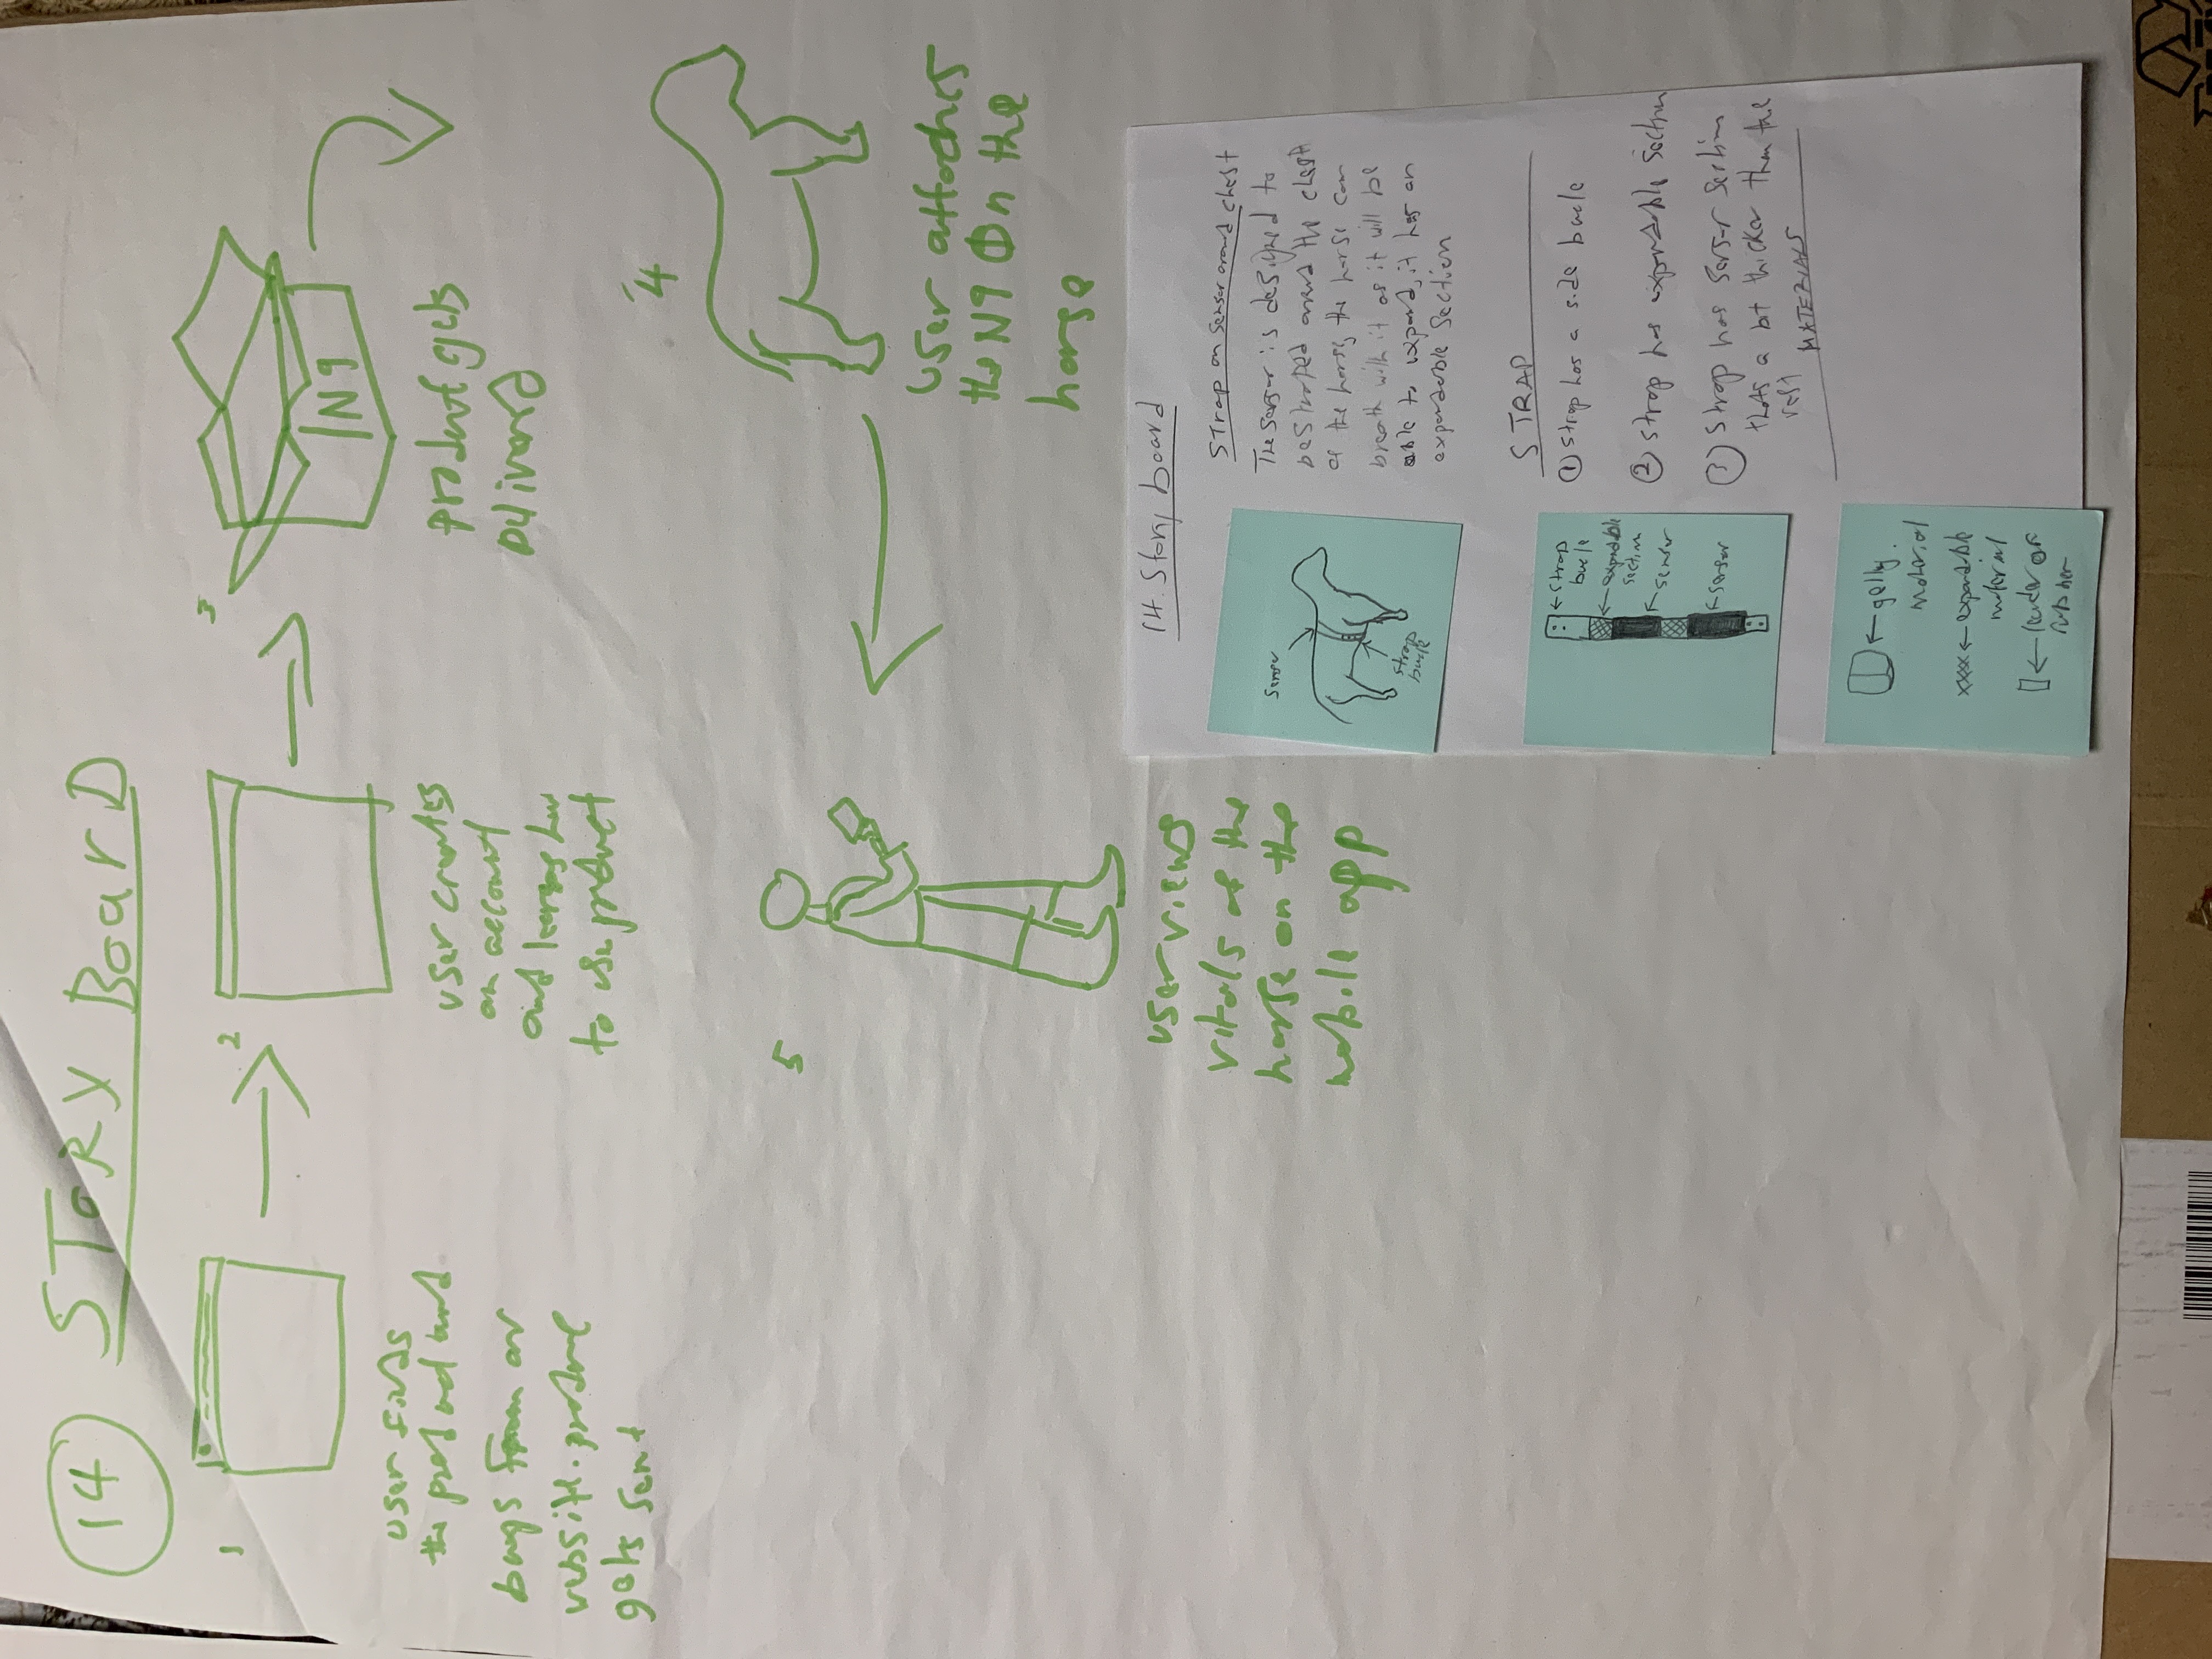 14
STORY BoarD
1
user finds
the product and
buys from our
website. product
gets sent
2
user creates
an account
and learns how
to use product
3
N9
product gets
Delivered
4
user attaches
the N9 On the
horse
5
user views
vitals of the
horse on the
mobile app
14. Story board
sensor
strap
bucle
Strap on sensor around chest
The sensor is designed to
be straped around the chest
of the horse, the horse can
breath with it as it will be
able to expand, it has an
expandable section
strap
bucle
expandable
section
sensor
sensor
STRAP
① strap has a side bucle
② strap has expandable section
③ strap has sensor section
thats a bit thicker than the
rest
MATERIALS
gelly
material
xxxx expandable
material
or